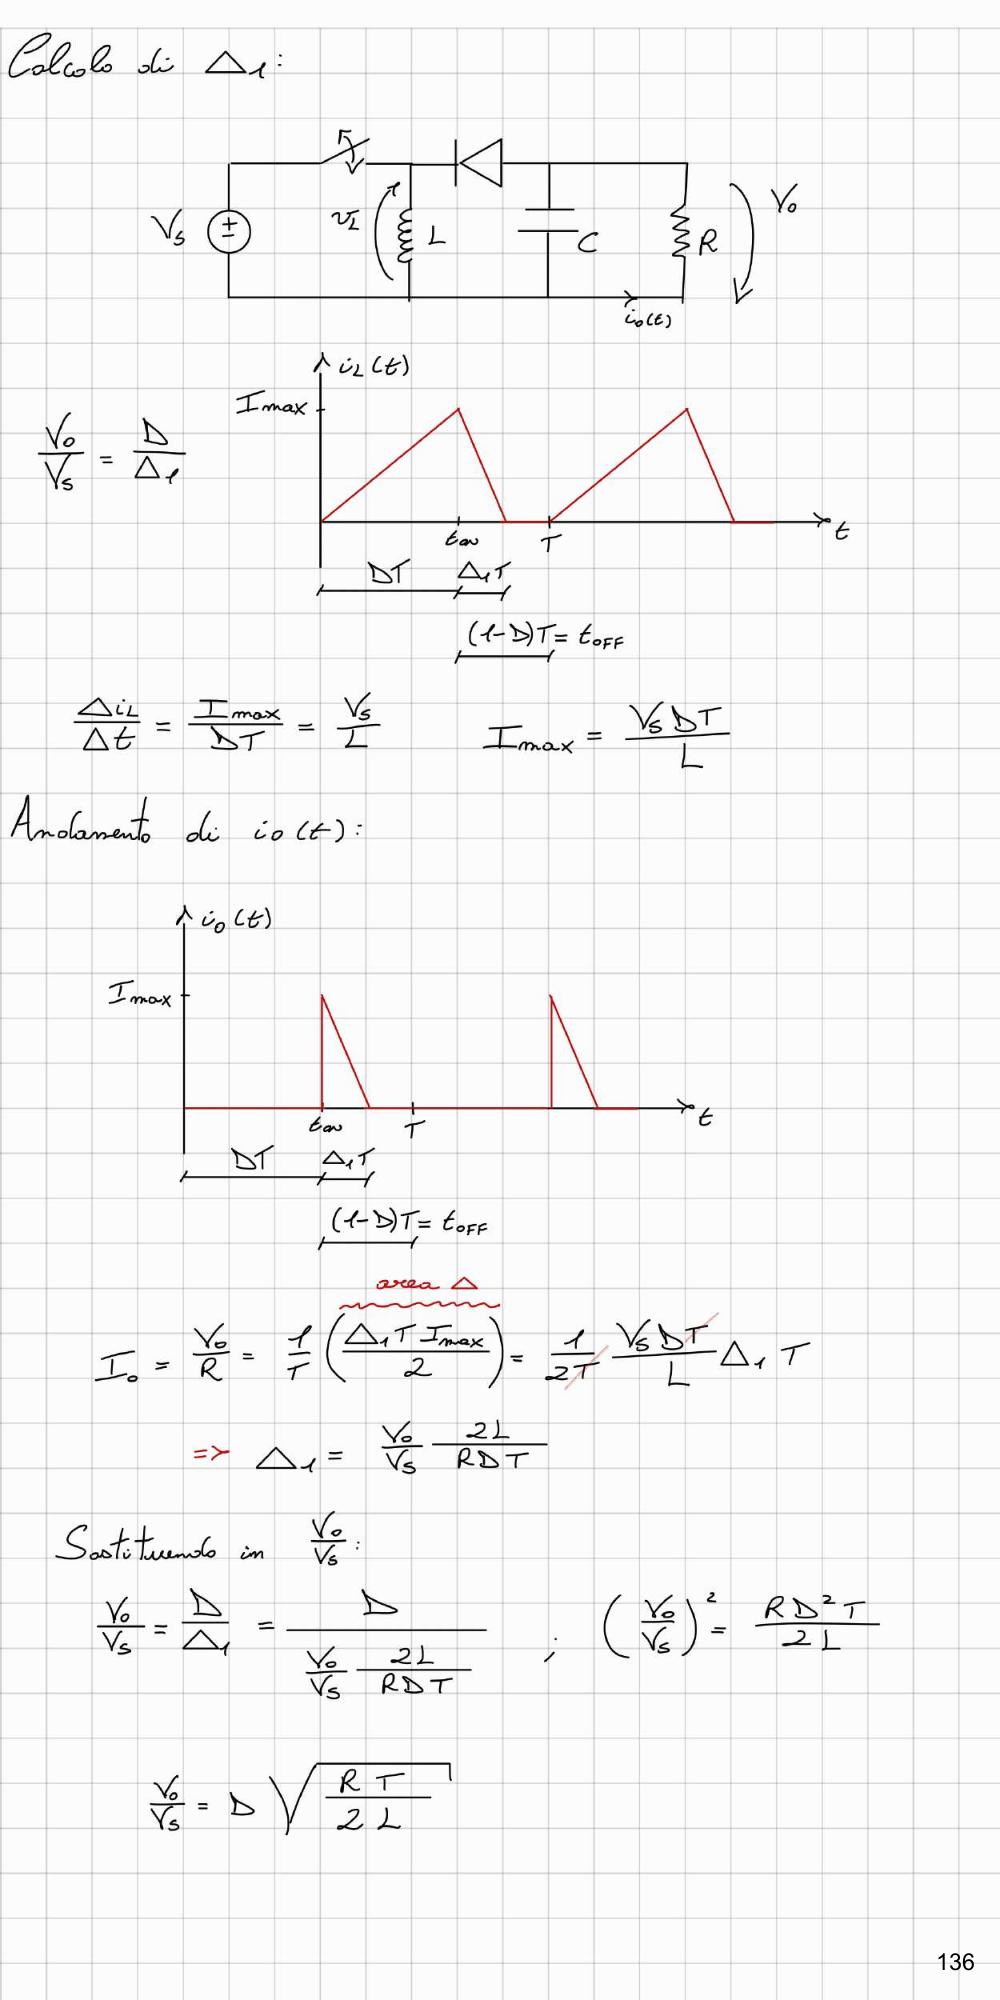 Calcolo di Δ₁:
Vs
±
v_L
L
C
R
V₀
i₀(t)
i_L(t)
Imax
V₀/Vs = D/Δ₁
ton
T
t
DT
Δ₁T
(1-D)T = tOFF
Δi_L/Δt = Imax/DT = Vs/L
Imax = Vs DT/L
Andamento di i₀(t):
i₀(t)
Imax
ton
T
t
DT
Δ₁T
(1-D)T = tOFF
area Δ
I₀ = V₀/R = 1/T (Δ₁ T Imax/2) = 1/2T Vs DT/L Δ₁ T
=> Δ₁ = V₀/Vs 2L/RDT
Sostituendo in V₀/Vs:
V₀/Vs = D/Δ₁ = D/(V₀/Vs 2L/RDT) ; (V₀/Vs)² = RD²T/2L
V₀/Vs = D √(RT/2L)
136